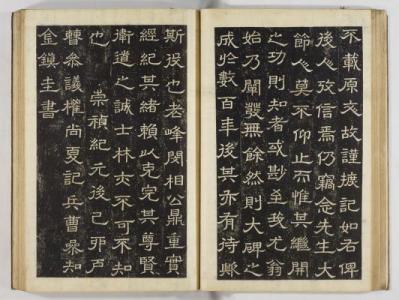 不載原文故謹摭記如右俾
後人攷信焉仍竊念先生大
節人莫不仰止而惟其繼開
之功則知者或尠至我尤翁
始乃闡發無餘然則大碑之
成於數百年後其亦有待歟
斯役也老峰閔相公鼎重實
經紀其緒賴以克完其尊賢
衛道之誠士林亦不可不知
也 崇禎紀元後己卯
曹叅議權尚夏記兵曹叅知
金鎮圭書